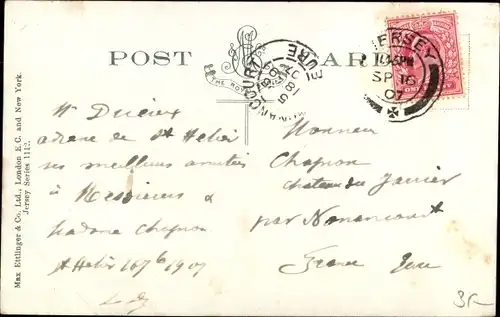 POST CARD
THE ROYAL
JERSEY
SP 16
07
NONANCOURT
EURE
Max Ettlinger & Co. Ltd., London E.C. and New York.
Jersey Series 1112.
de St Helier
ses meilleurs amitiés
à Messieurs &
Madame Chapron
St Helier 16 1907
Monsieur
Chapron
chateau du
par Nonancourt
France Eure